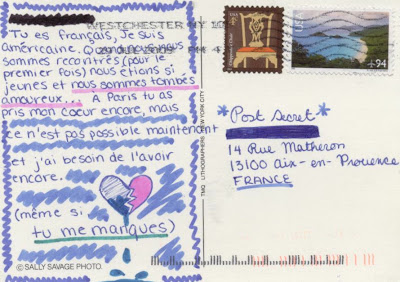 WESTCHESTER NY 10
Tu es français, Je suis
américaine. Quand nous nous
sommes recontrés (pour le
premier fois) nous étions si
jeunes et nous sommes tombés
amoureux... A Paris tu as
pris mon coeur encore, mais
ce n'est pas possible maintenant
et j'ai besoin de l'avoir
encore.
(même si
tu me manques)
© SALLY SAVAGE PHOTO.
TMQ LITHOGRAPHERS NEW YORK CITY
USA
+94
*Post Secret*
14 Rue Matheron
13100 Aix-en-Provence
FRANCE